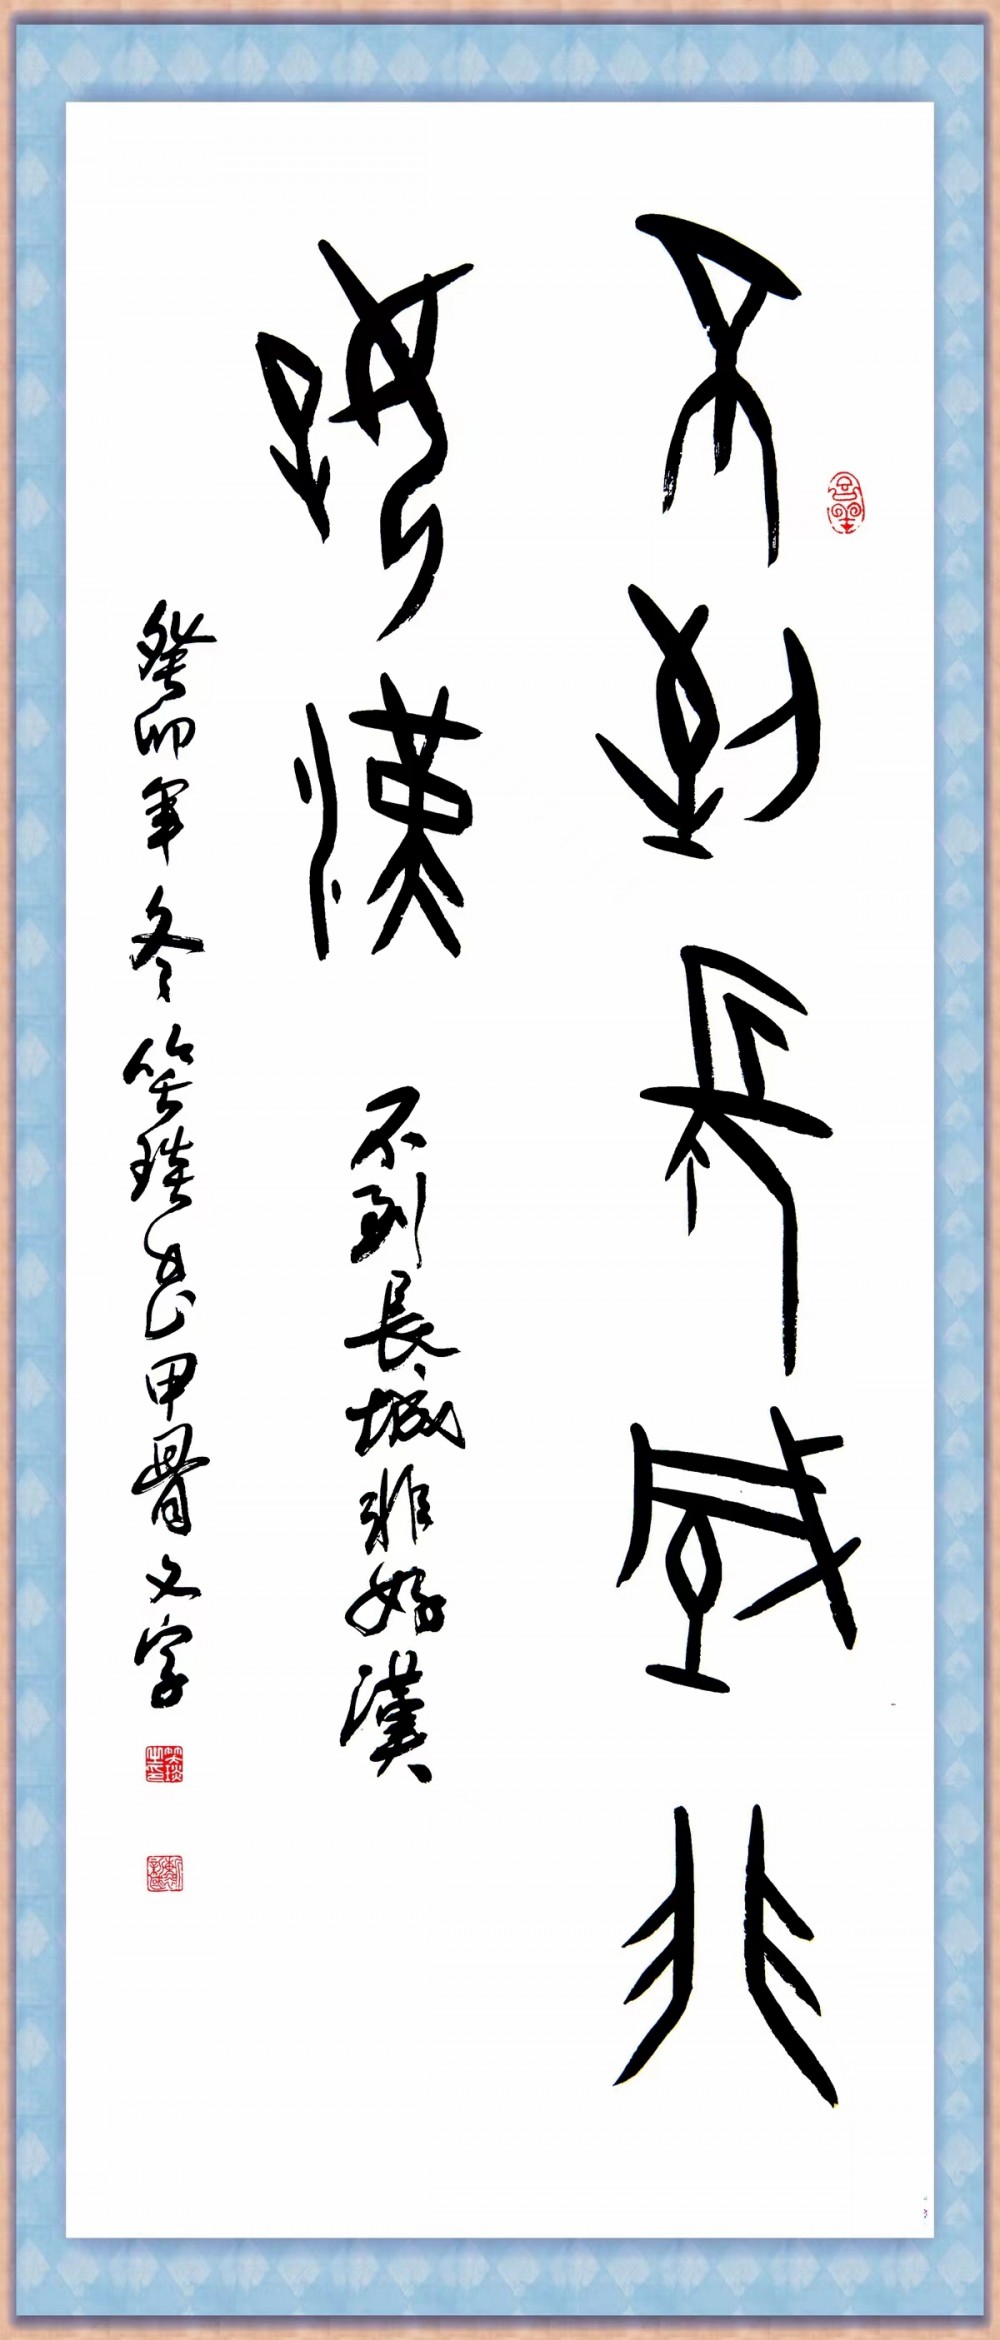 不到長城非
好漢
不到長城非好漢
癸卯年冬笑琰書甲骨文字